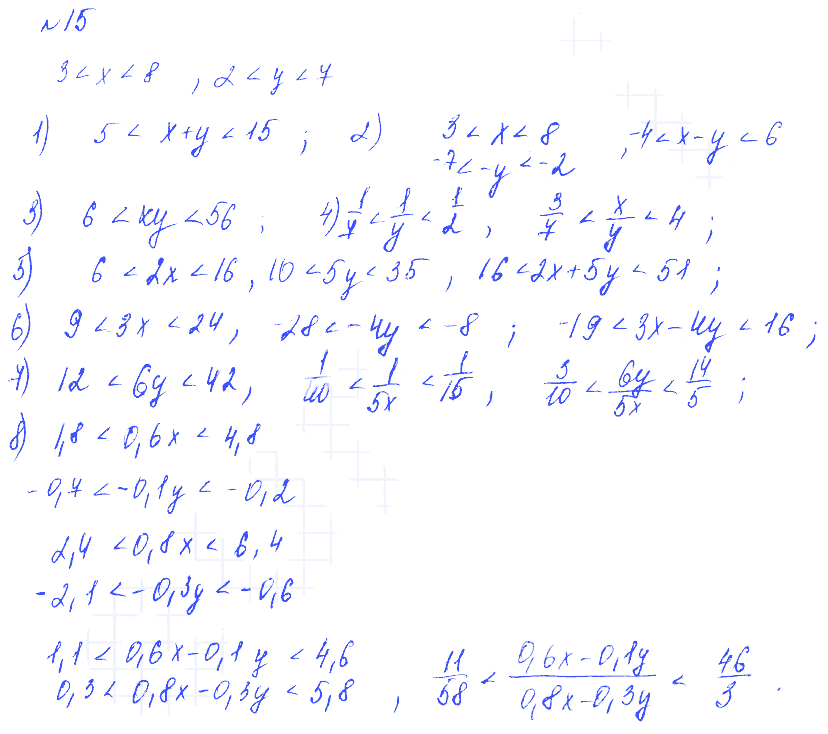 №15
3 < x < 8 , 2 < y < 7
1) 5 < x+y < 15 ; 2) 3 < x < 8 , -4 < x-y < 6
-7 < -y < -2
3) 6 < xy < 56 ; 4) 1/7 < 1/y < 1/2 , 3/7 < x/y < 4 ;
5) 6 < 2x < 16 , 10 < 5y < 35 , 16 < 2x+5y < 51 ;
6) 9 < 3x < 24 , -28 < -4y < -8 ; -19 < 3x-4y < 16 ;
7) 12 < 6y < 42 , 1/40 < 1/5x < 1/15 , 3/10 < 6y/5x < 14/5 ;
8) 1,8 < 0,6x < 4,8
-0,7 < -0,1y < -0,2
2,4 < 0,8x < 6,4
-2,1 < -0,3y < -0,6
1,1 < 0,6x-0,1y < 4,6
0,3 < 0,8x-0,3y < 5,8 , 11/58 < (0,6x-0,1y)/(0,8x-0,3y) < 46/3 .